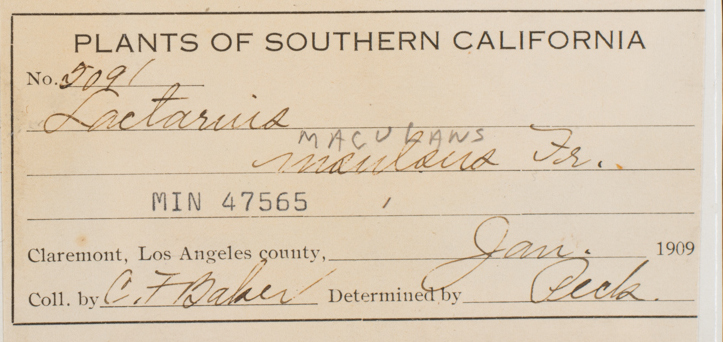 PLANTS OF SOUTHERN CALIFORNIA
No. 5091
Lactarius
MACULANS
Fr.
MIN 47565
Claremont, Los Angeles county, Jan. 1909
Coll. by C. F Baker Determined by Peck.